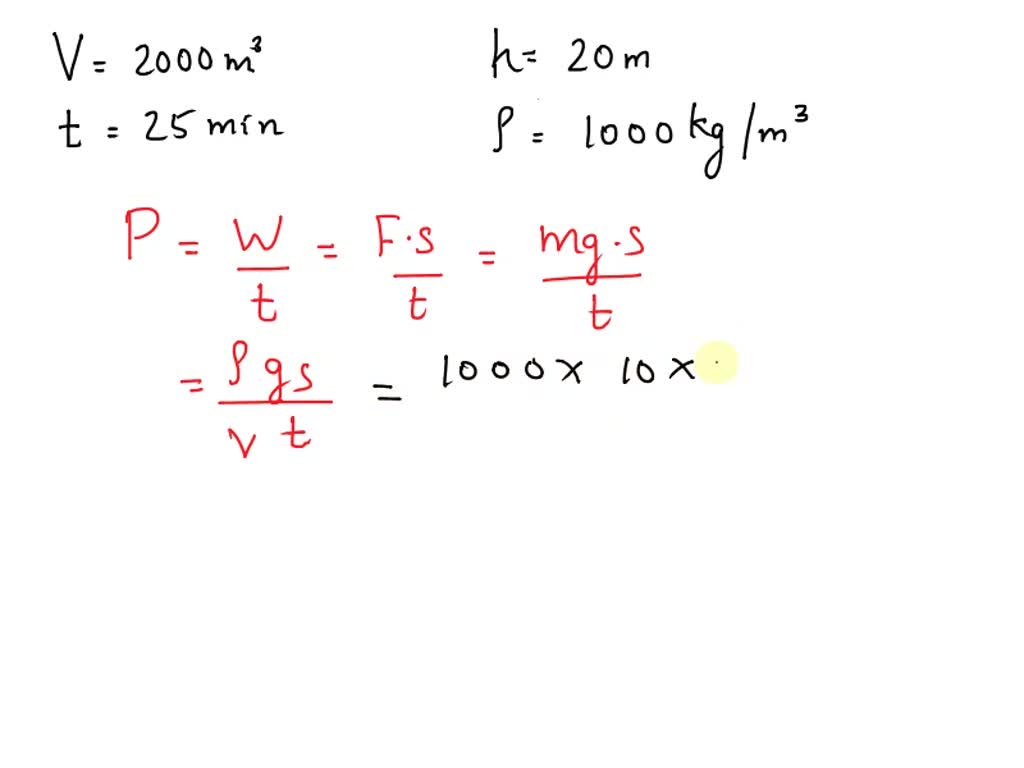 V = 2000 m³ h = 20 m
t = 25 min ρ = 1000 kg/m³
P = W/t = F·s/t = mg·s/t
= ρgs/vt = 1000 × 10 ×